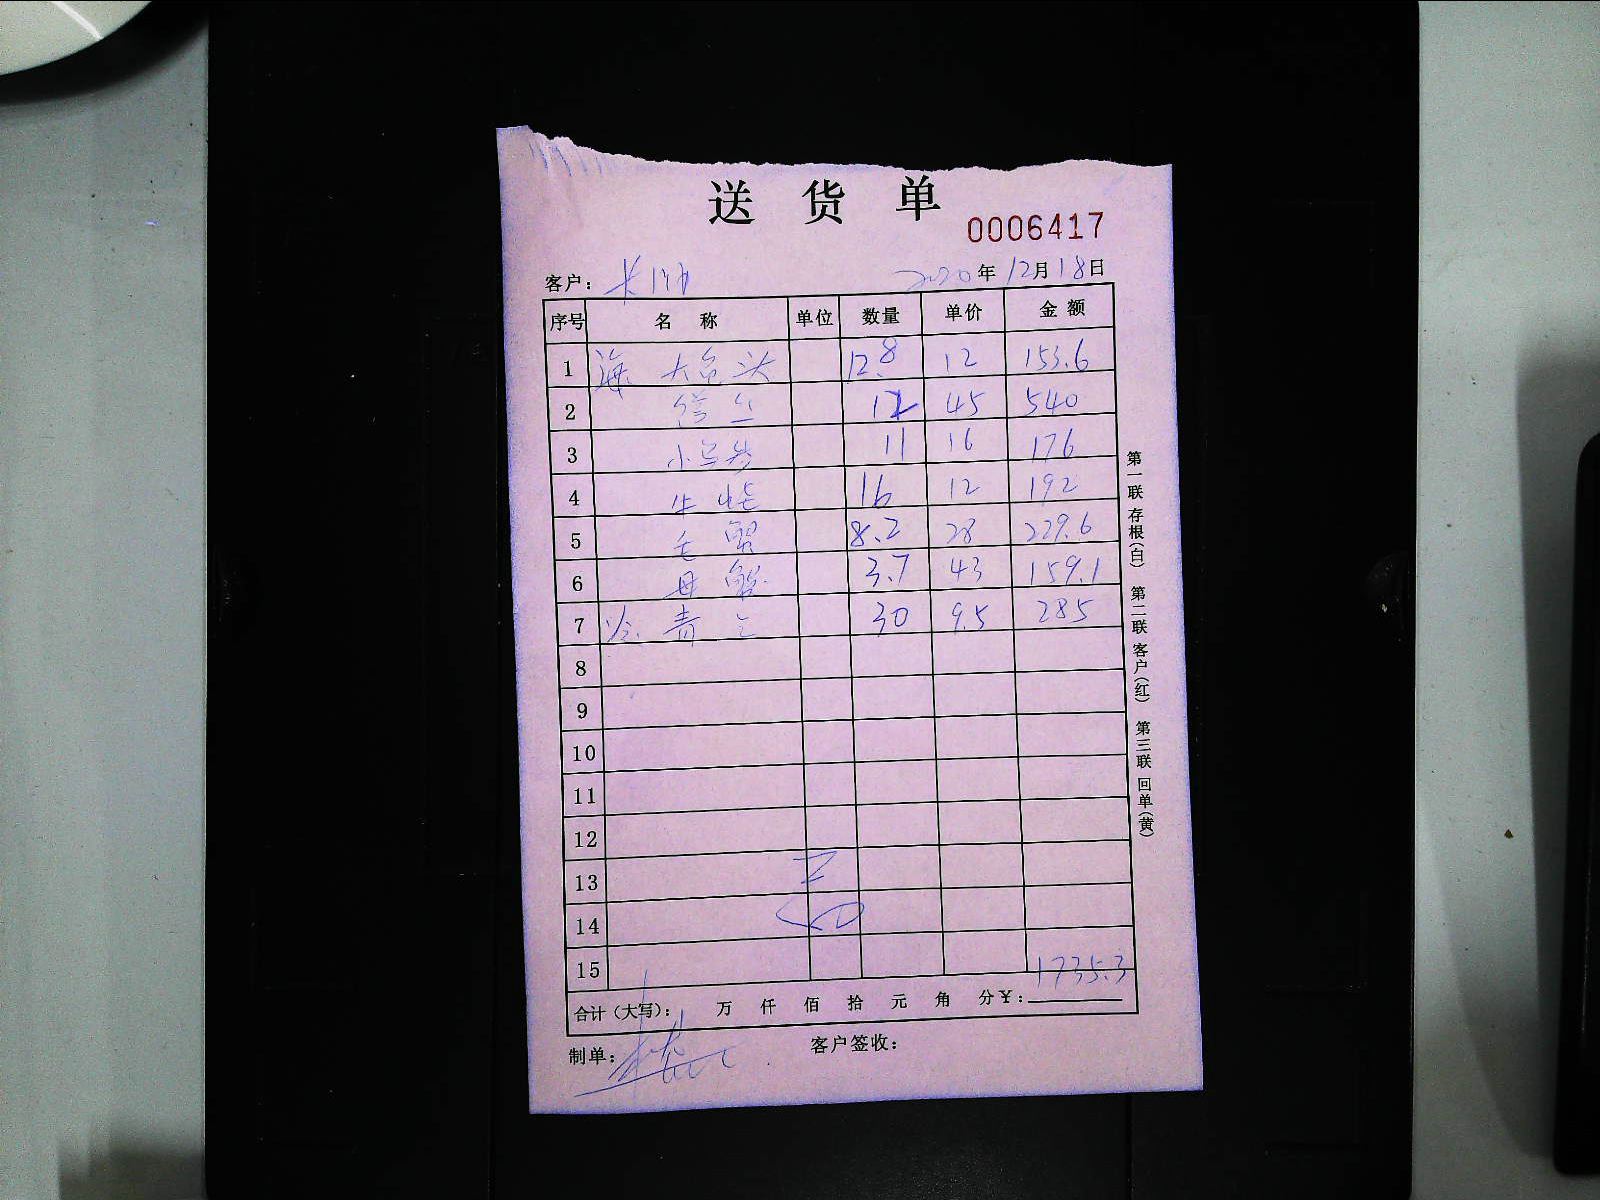 送 货 单
0006417
客户: 2020年12月18日
序号 名 称 单位 数量 单价 金 额
1 海 大鱼头 12.8 12 153.6
2 12 45 540
3 11 16 176
4 16 12 192
5 毛 蟹 8.2 28 229.6
6 母 蟹 3.7 43 159.1
7 冷 青 30 9.5 285
8
9
10
11
12
13
14
15 1735.3
合计(大写): 万 仟 佰 拾 元 角 分¥:
制单: 客户签收:
第一联 存根(白) 第二联 客户(红) 第三联 回单(黄)